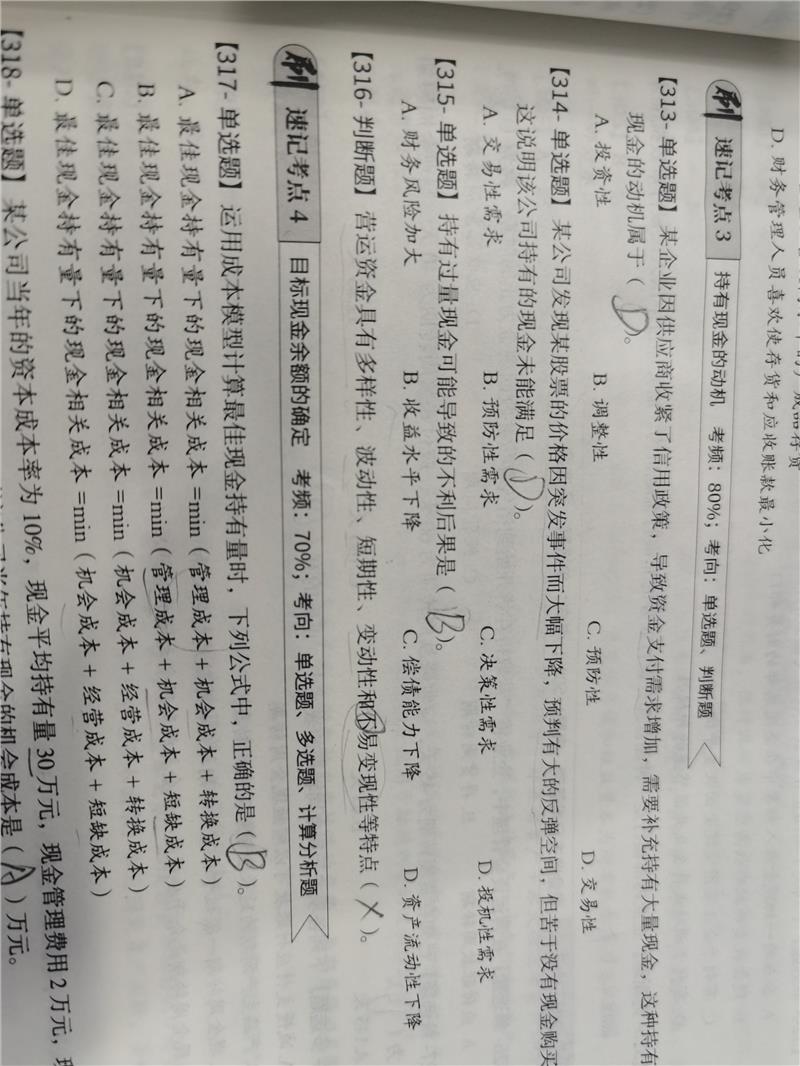 D. 财务管理人员喜欢使存货和应收账款最小化
刷 速记考点 3 持有现金的动机 考频：80%；考向：单选题、判断题
【313- 单选题】某企业因供应商收紧了信用政策，导致资金支付需求增加，需要补充持有大量现金，这种持有
现金的动机属于（ D ）。
A. 投资性 B. 调整性 C. 预防性 D. 交易性
【314- 单选题】某公司发现某股票的价格因突发事件而大幅下降，预判有大的反弹空间，但苦于没有现金购买
这说明该公司持有的现金未能满足（ D ）。
A. 交易性需求 B. 预防性需求 C. 决策性需求 D. 投机性需求
【315- 单选题】持有过量现金可能导致的不利后果是（ B ）。
A. 财务风险加大 B. 收益水平下降 C. 偿债能力下降 D. 资产流动性下降
【316- 判断题】营运资金具有多样性、波动性、短期性、变动性和不易变现性等特点（ × ）。
刷 速记考点 4 目标现金余额的确定 考频：70%；考向：单选题、多选题、计算分析题
【317- 单选题】运用成本模型计算最佳现金持有量时，下列公式中，正确的是（ B ）。
A. 最佳现金持有量下的现金相关成本 =min（管理成本 + 机会成本 + 转换成本）
B. 最佳现金持有量下的现金相关成本 =min（管理成本 + 机会成本 + 短缺成本）
C. 最佳现金持有量下的现金相关成本 =min（机会成本 + 经营成本 + 转换成本）
D. 最佳现金持有量下的现金相关成本 =min（机会成本 + 经营成本 + 短缺成本）
【318- 单选题】某公司当年的资本成本率为 10%，现金平均持有量 30 万元，现金管理费用 2 万元，
持有现金的机会成本是（ A ）万元。